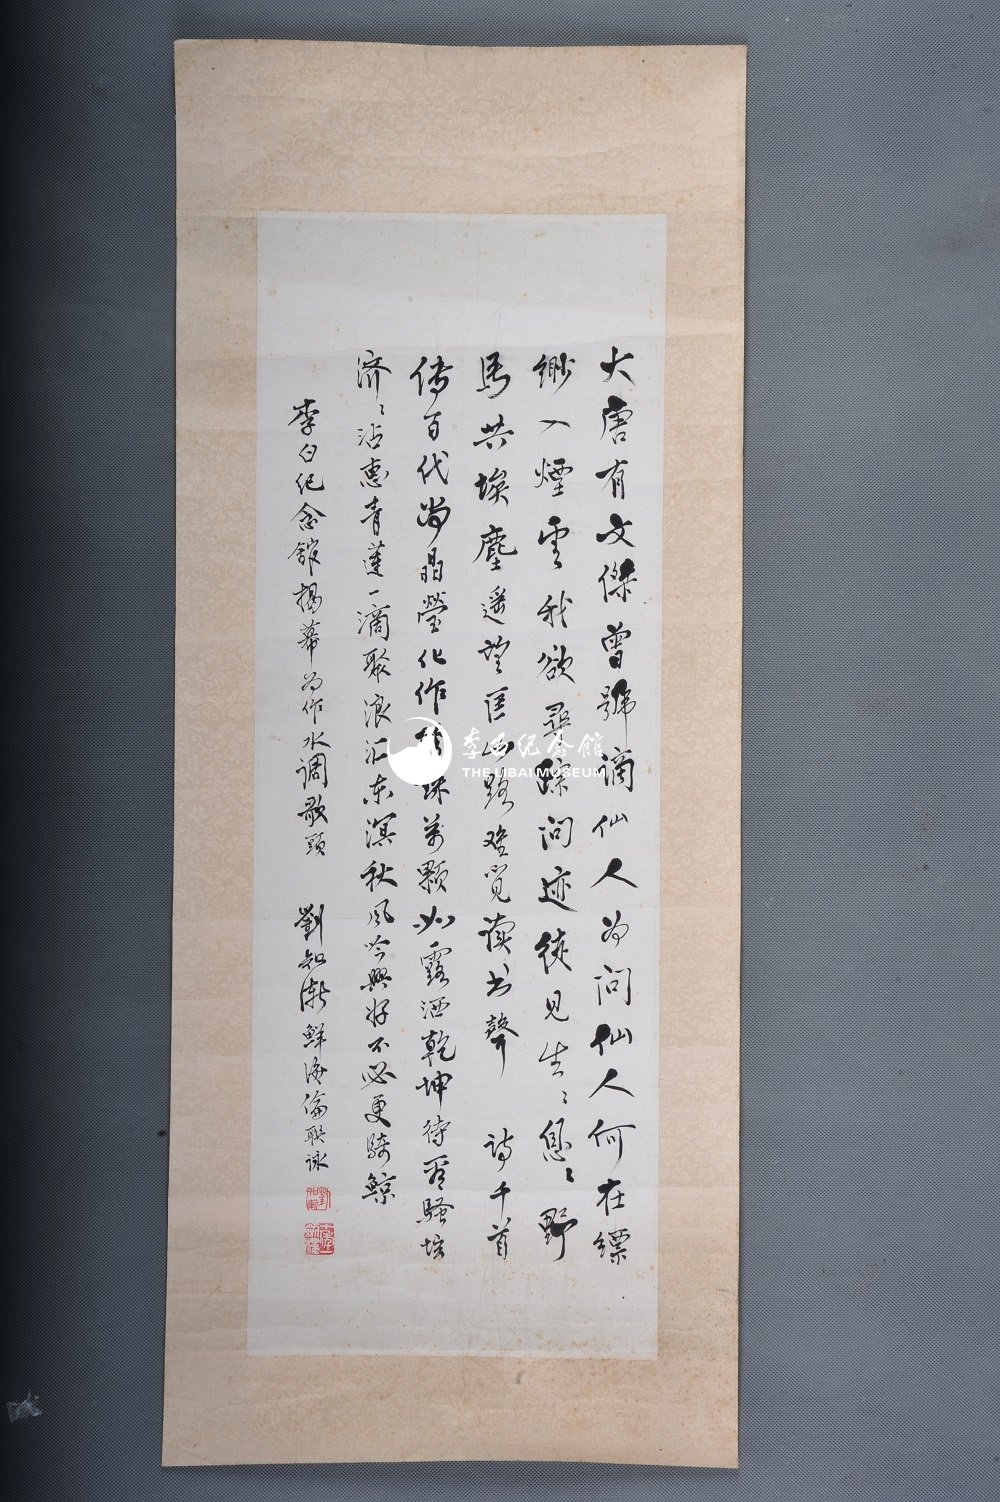 大唐有文傑曾號謫仙人为问仙人何在缥
缈入煙雲我欲尋踪问迹徒见生〻息〻野
馬共埃塵遥望匡山路难觅读书聲 詩千首
傳百代尚晶莹化作 珠萬顆如露洒乾坤待看騷坛
济〻沾惠青莲一滴聚浪汇东溟秋風吟興好不必更騎鯨
李白纪念舘揭幕为作水调歌頭 劉知渐鮮海倫联詠
李白纪念館
THE LIBAI MUSEUM